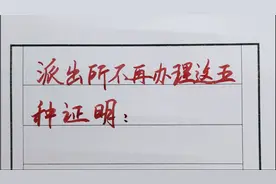 派出所不再办理这五
种证明：